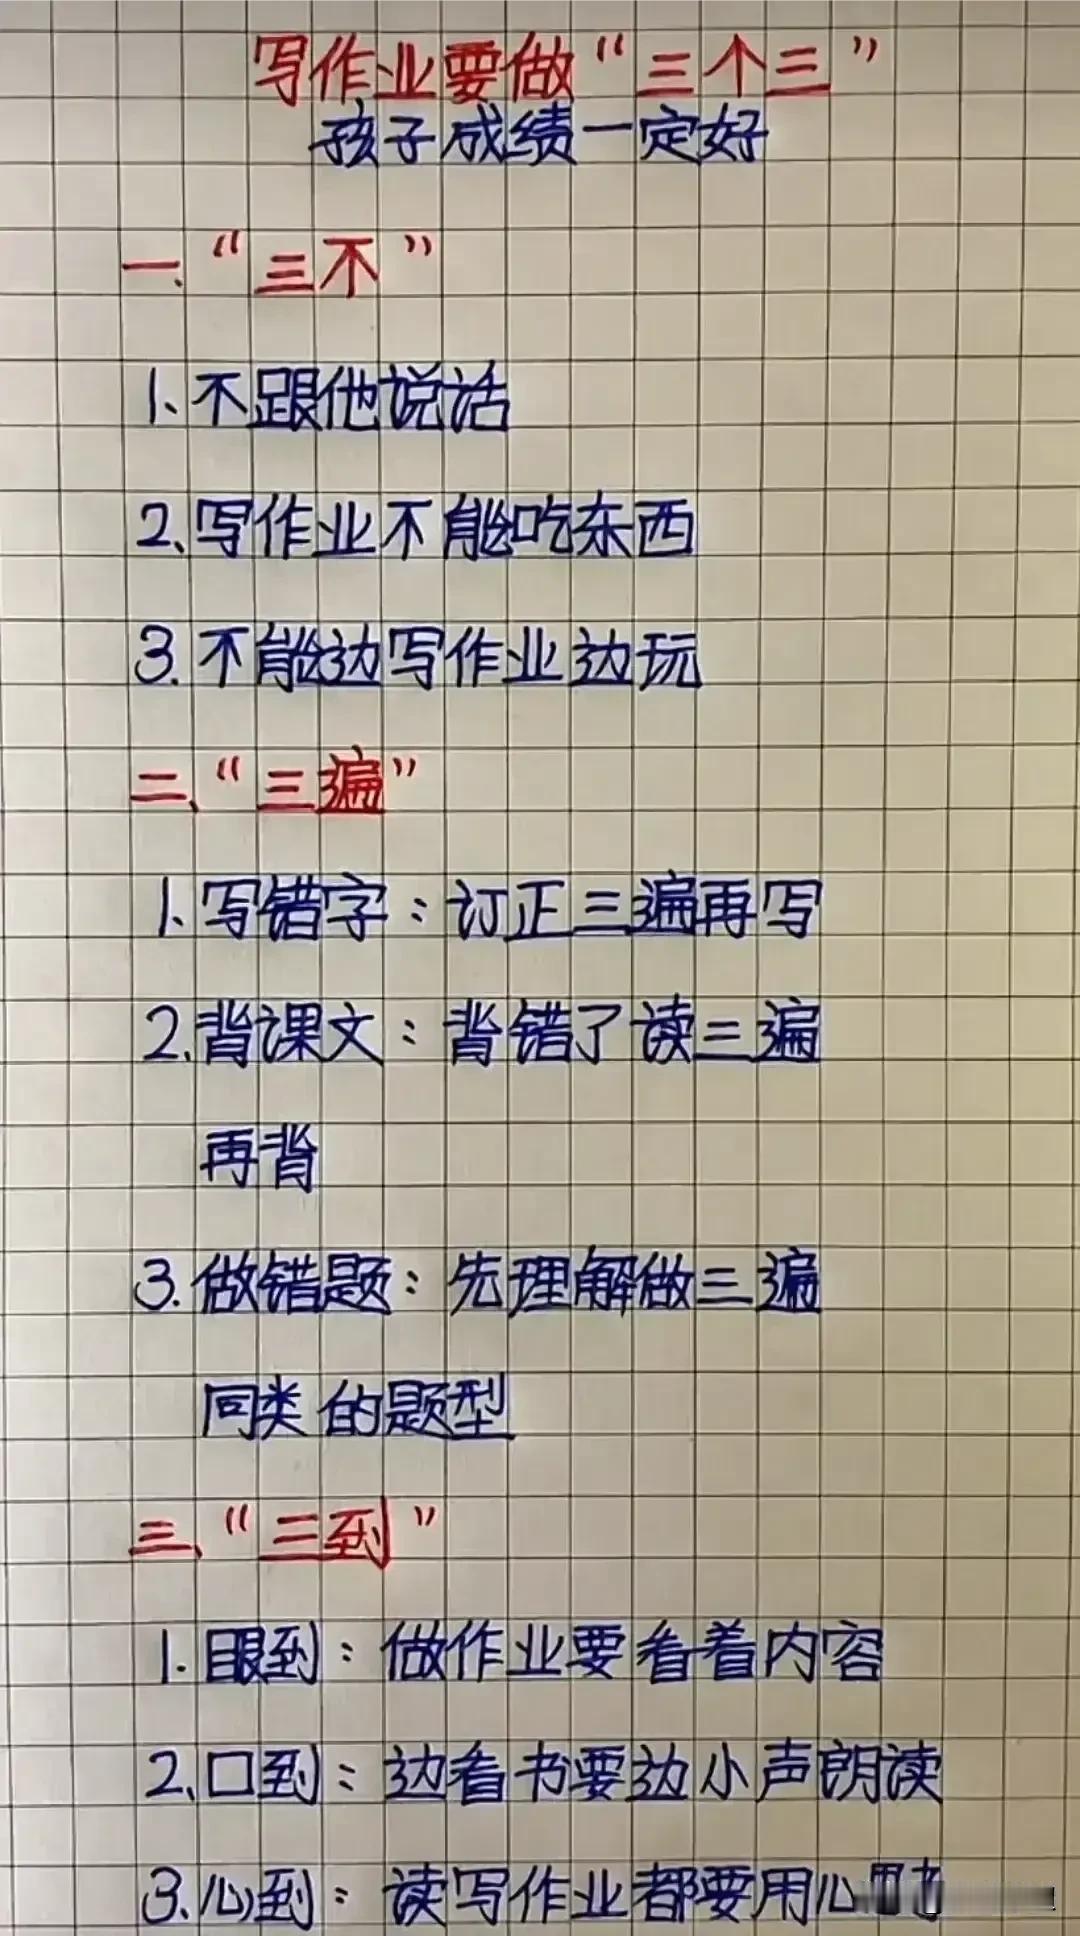 写作业要做“三个三”
孩子成绩一定好
一.“三不”
1、不跟他说话
2、写作业不能吃东西
3.不能边写作业边玩
二、“三遍”
1、写错字：订正三遍再写
2、背课文：背错了读三遍
再背
3.做错题：先理解做三遍
同类的题型
三、“三到”
1.眼到：做作业要看着内容
2、口到：边看书要边小声朗读
3.心到：读写作业都要用心